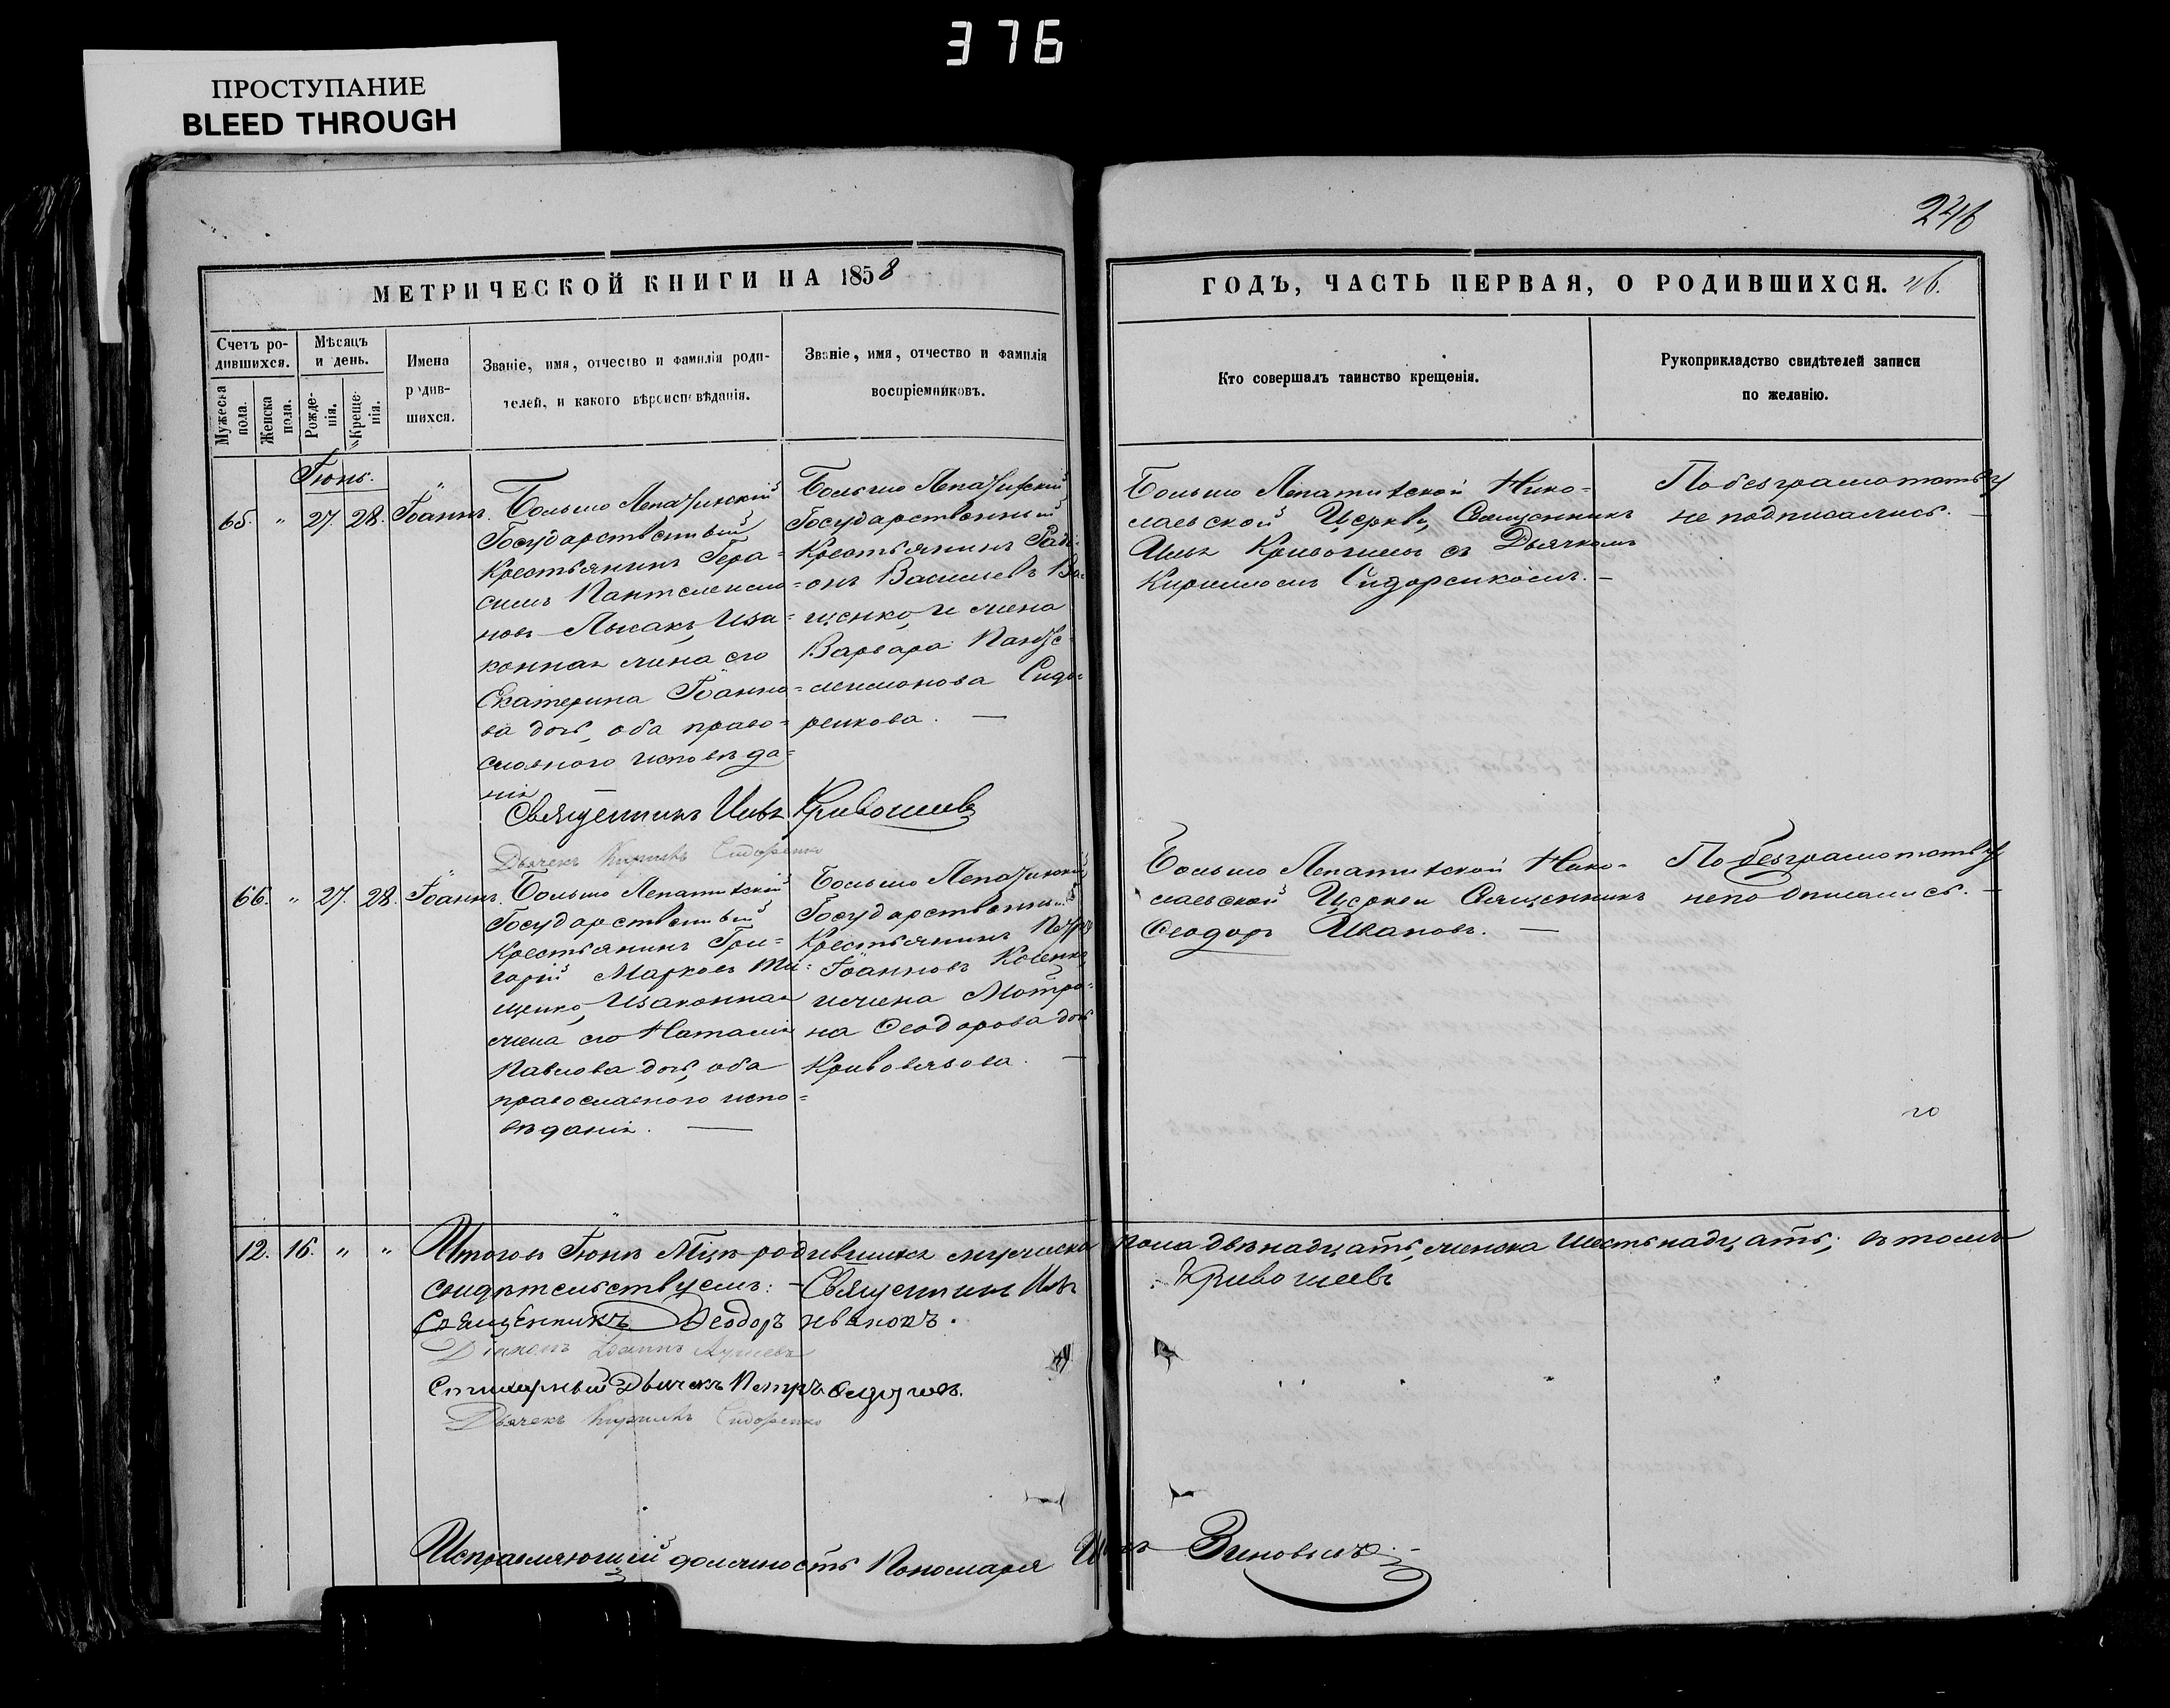 376
ПРОСТУПАНИЕ
BLEED THROUGH
246
МЕТРИЧЕСКОЙ КНИГИ НА 1858
ГОДЪ, ЧАСТЬ ПЕРВАЯ, О РОДИВШИХСЯ.
Счетъ ро-
дившихся.
Мужеска
пола.
Женска
пола.
Мѣсяцъ
и день.
Рожде-
нія.
Креще-
нія.
Имена
родив-
шихся.
Званіе, имя, отчество и фамилія роди-
телей, и какого вѣроисповѣданія.
Званіе, имя, отчество и фамилія
воспріемниковъ.
Кто совершалъ таинство крещенія.
Рукоприкладство свидѣтелей записи
по желанію.
Іюнь.
65. " 27. 28. Іоаннъ.
Больше Лепатихскій
Государственный
Крестьянинъ Гера-
симъ Пантелеимо-
новъ Лысакъ, и за-
конная жена его
Екатерина Іоанно-
ва дочь, оба право-
славного исповѣда-
нія
Больше Лепатихскій
Государственный
Крестьянинъ Роди-
онъ Васильевъ
и жена
Варвара Панте-
леимонова Сидо-
ренкова. —
Больше Лепатихской Нико-
лаевской Церкви, Священникъ
Илія Кривошеевъ съ Дьячкомъ
Кирилломъ Сидоренкомъ. —
По безграмотству
не подписались. —
Священникъ Илія Кривошеевъ
Дьячекъ Кириллъ Сидоренко
66. " 27. 28. Іоаннъ.
Больше Лепатихскій
Государственный
Крестьянинъ Гри-
горій Марковъ Ти-
щенко, и законная
жена его Наталія
Павлова дочь, оба
православного испо-
вѣданія. —
Больше Лепатихскій
Государственный
Крестьянинъ Петръ
Іоанновъ
и жена Мотро-
на Ѳеодорова дочь
Кривовязова. —
Больше Лепатихской Нико-
лаевской Церкви Священникъ
Ѳеодоръ Ивановъ. —
По безграмотству
неподписались. —
12. 16. " " Итого въ Іюнѣ Мцѣ родившихся мужеска пола двѣнадцать, женска шестьнадцать; въ томъ
свидѣтельствуемъ: - Священникъ Илія Кривошеевъ
Священникъ Ѳеодоръ Ивановъ.
Діаконъ Іоаннъ
Стихарный Дьячекъ Петръ
Дьячекъ Кириллъ Сидоренко
Исправляющій должность Пономаря Зиновьевъ. —